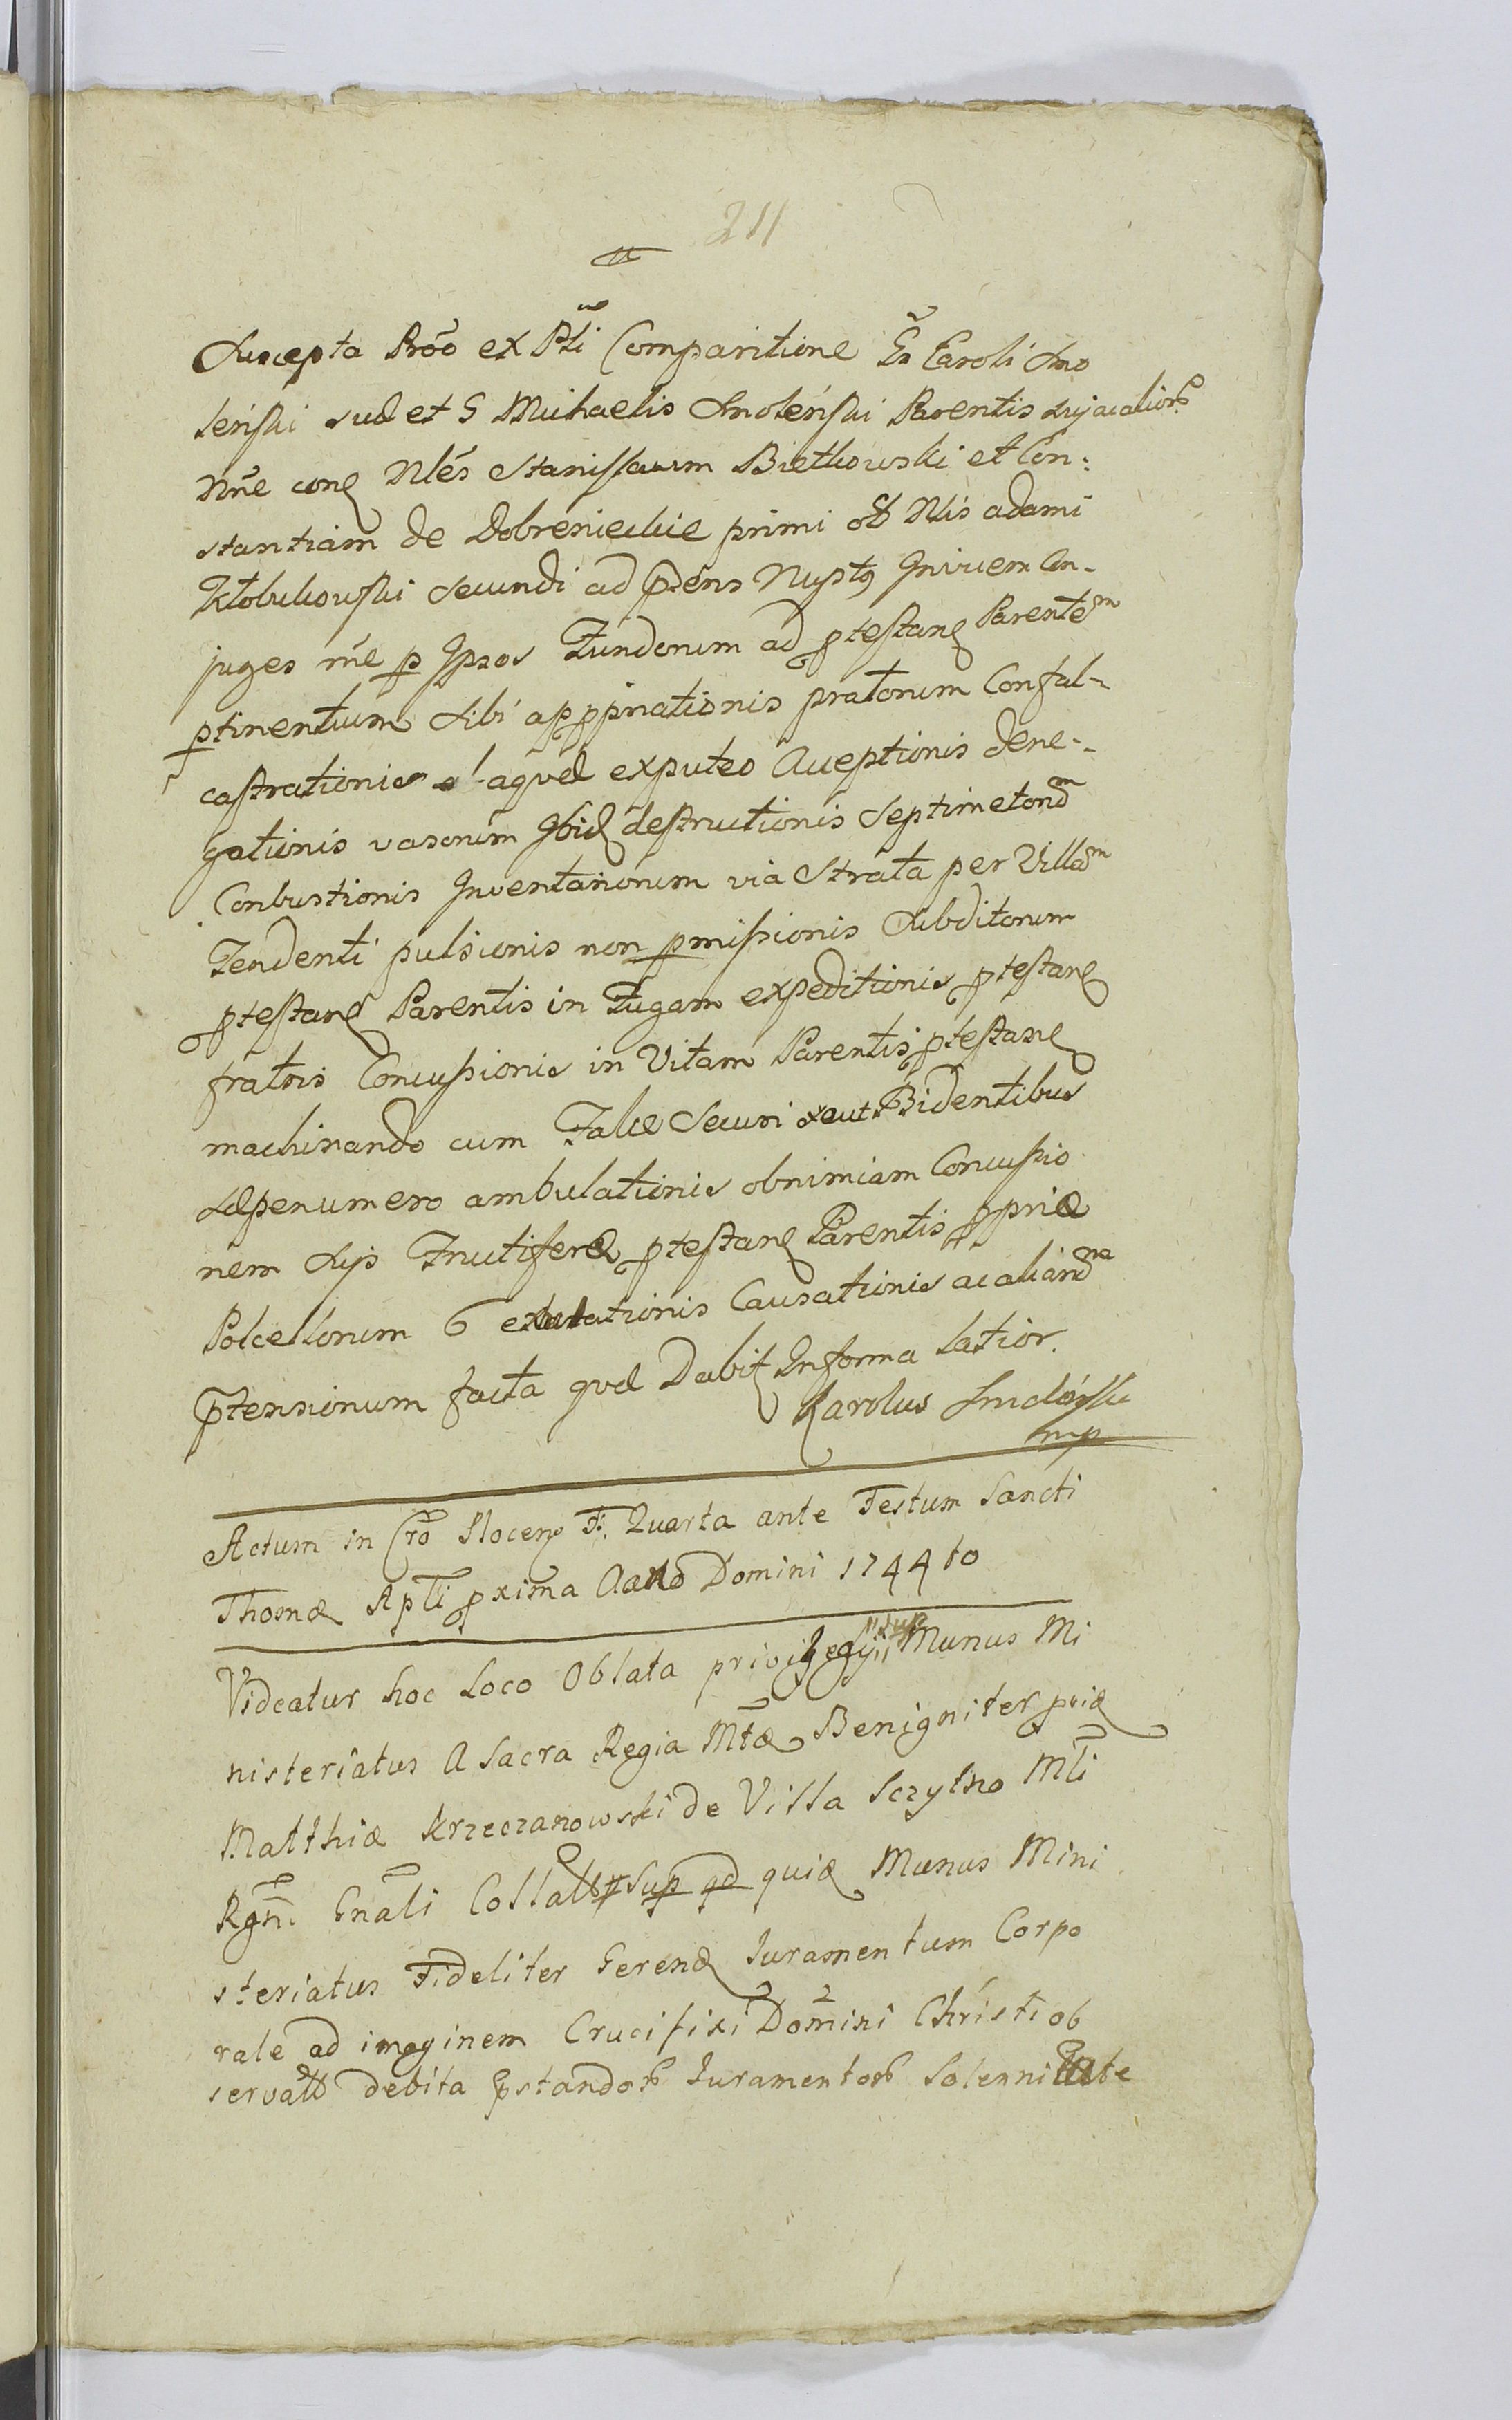 211
Suscepta Prõo ex Pti Comparitione Gs Caroli Smo
leński suo et G Michaelis Smoleński Parentis sui ac aliorb
Nñe cong Nlés Stanislaum Bietkowski et Con:
stantiam de Dobreniechie primi ob Nlis Adami
Kłobukowski Secundi ad pṡens Nuptę Invicem Con-
juges rñe p Ipsos Fundorum ad ptestanę Parentem
ptinentium Sibi appprnationis pratorum Confal-
castrationis aquæ exputeo Acceptionis dene-
gationis vasorum Ibidę destructionis
Conbustionis Inventariorum via Strata per Villam
Tendenti pulsionis non pmissionis Subditorum
ptestanę Parentis in Fugam expeditionis ptestanę
fratris Concussionis in Vitam Parentis ptestanę
machinando cum Falce Securi aut Bidentibus
Sæpenumero ambulationis obnimiam Concussio
nem Suis Frutiferæ ptestanę Parentis ppriæ
Polcellorum 6 Causationis ac aliarũ
ptensionum facta quæ Dabit Informa Latior.
Karolus Smoleński
mp
Actum in Cro Plocenę F. Quarta ante Festum Sancti
Thomæ Apli pxima Anno Domini 1744to
Videatur hoc Loco Oblata privilegyii sup Munus Mi
nisteriatus A Sacra Regia Mtæ Benigniter pvię
Matthiæ Krzeczanowski de Villa Sczytno Mli
Rgñi Gñali Collatb Sup qd quię Munus Mini
steriatus Fideliter Gerendę Iuramentum Corpo
rale ad imaginem Crucifixi Domini Christi ob
servatb debita pstandorb Iuramentorb Solennitate